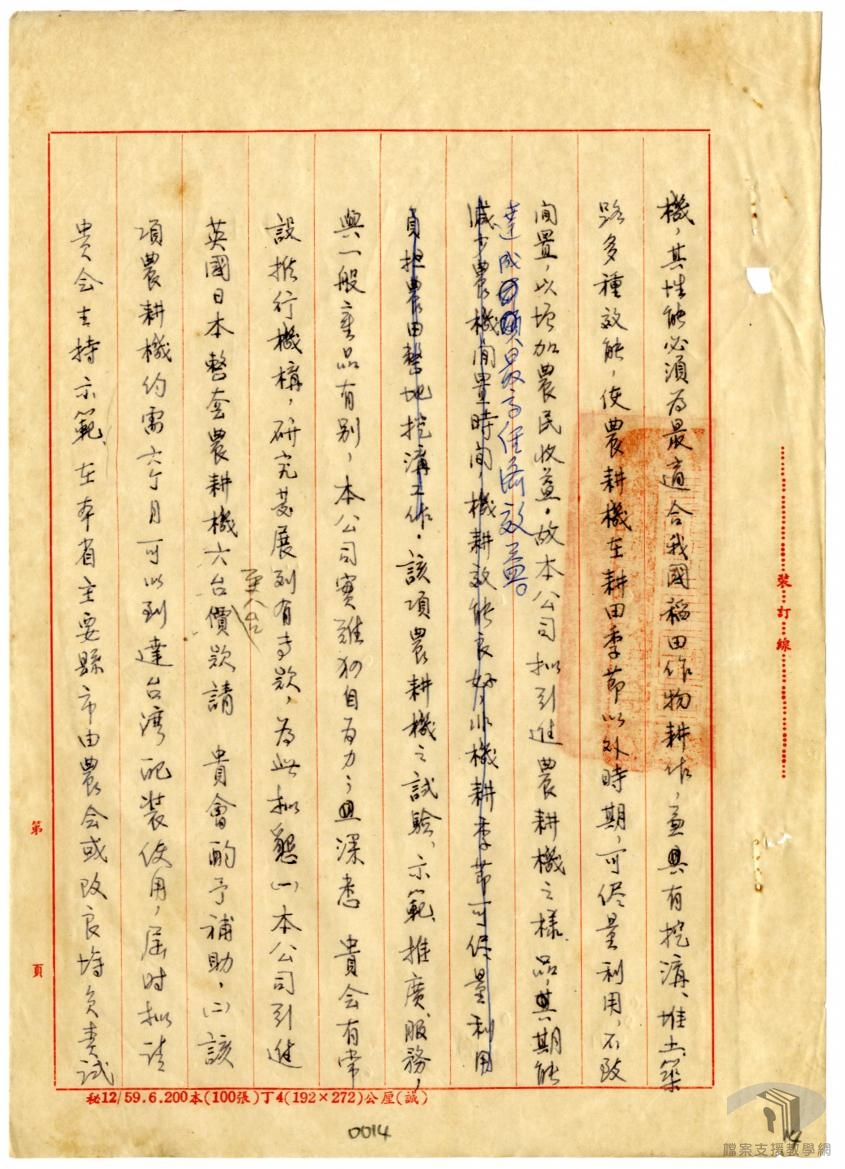 機，其性能必須為最適合我國稻田作物耕作，兼具有挖溝、堆土築
路多種效能，使農耕機在耕田季節以外時期，可侭量利用，不致
閒置，以增加農民收益。故本公司拟引進農耕機之樣品，其期能
達成最高經濟效益
減少農機閒置時間，機耕效能良好，非機耕季節可侭量利用
自担農田整地挖溝工作。該項農耕機之試驗、示範、推廣、服務，
與一般產品有别，本公司實難独自為力；且深悉 貴会有常
設推行機構，研究發展列有專款，為此拟懇(一)本公司引進
英國日本整套農耕機六台價款請 貴會酌予補助，(二)該
項農耕機約需六个月可以到達台灣配裝使用，屆时拟請
貴会主持示範、在本省主要縣市由農会或改良場負責試
裝訂線
第 頁
秘12/59.6.200本(100張)丁4(192×272)公屋(誠)
0014
14
檔案支援教學網